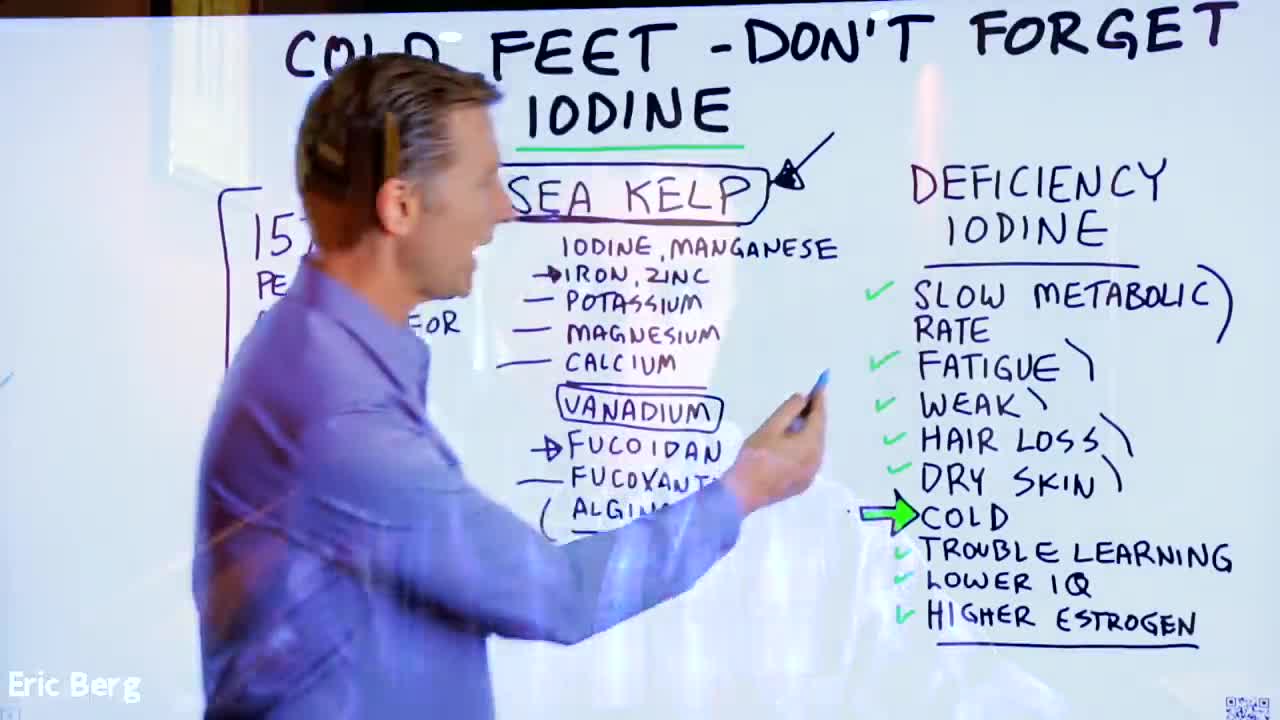 COLD FEET - DON'T FORGET
IODINE
SEA KELP
IODINE, MANGANESE
IRON, ZINC
POTASSIUM
MAGNESIUM
CALCIUM
VANADIUM
FUCOIDAN
DEFICIENCY
IODINE
SLOW METABOLIC
RATE
FATIGUE
WEAK
HAIR LOSS
DRY SKIN
COLD
TROUBLE LEARNING
LOWER IQ
HIGHER ESTROGEN
Eric Berg